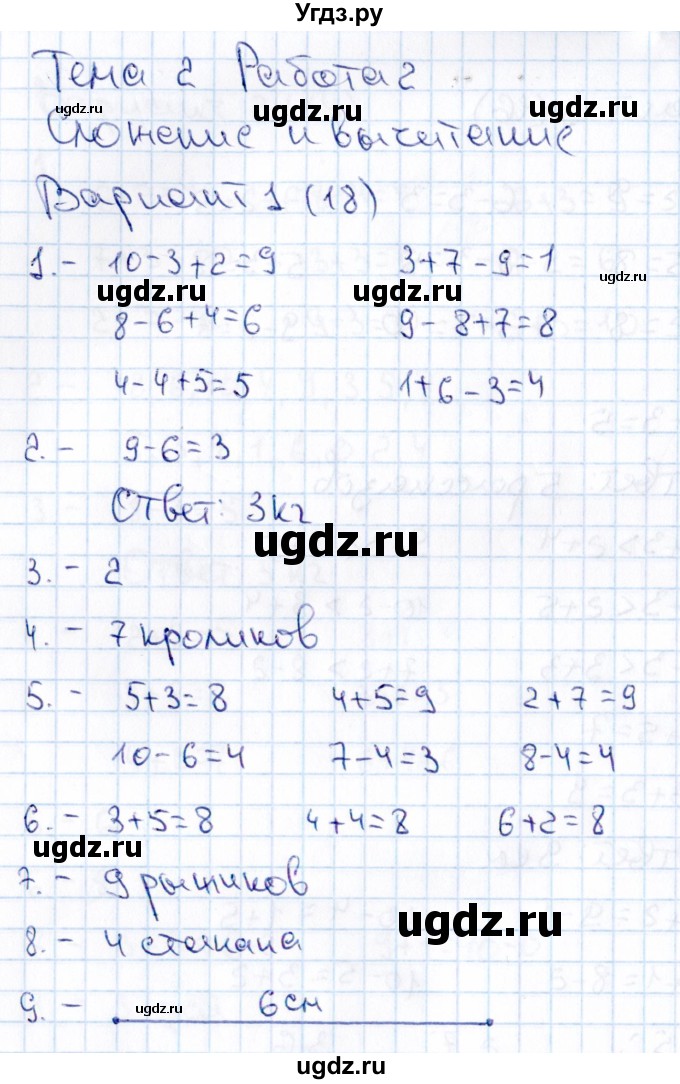 Угдз.ру
Тема 2 Работа 2
ugdz.ru ugdz.ru ugdz.ru
Сложение и вычитание
Вариант 1 (18)
1. - 10-3+2=9 3+7-9=1
ugdz.ru ugdz.ru ugdz.ru
8-6+4=6 9-8+7=8
4-4+5=5 1+6-3=4
2. - 9-6=3
Ответ: 3кг
ugdz.ru
3. - 2
4. - 7 кроликов
5. - 5+3=8 4+5=9 2+7=9
10-6=4 7-4=3 8-4=4
6. - 3+5=8 4+4=8 6+2=8
ugdz.ru
7. - 9 рыжиков
ugdz.ru
8. - 4 стакана
9. - ugdz.ru 6см
ugdz.ru